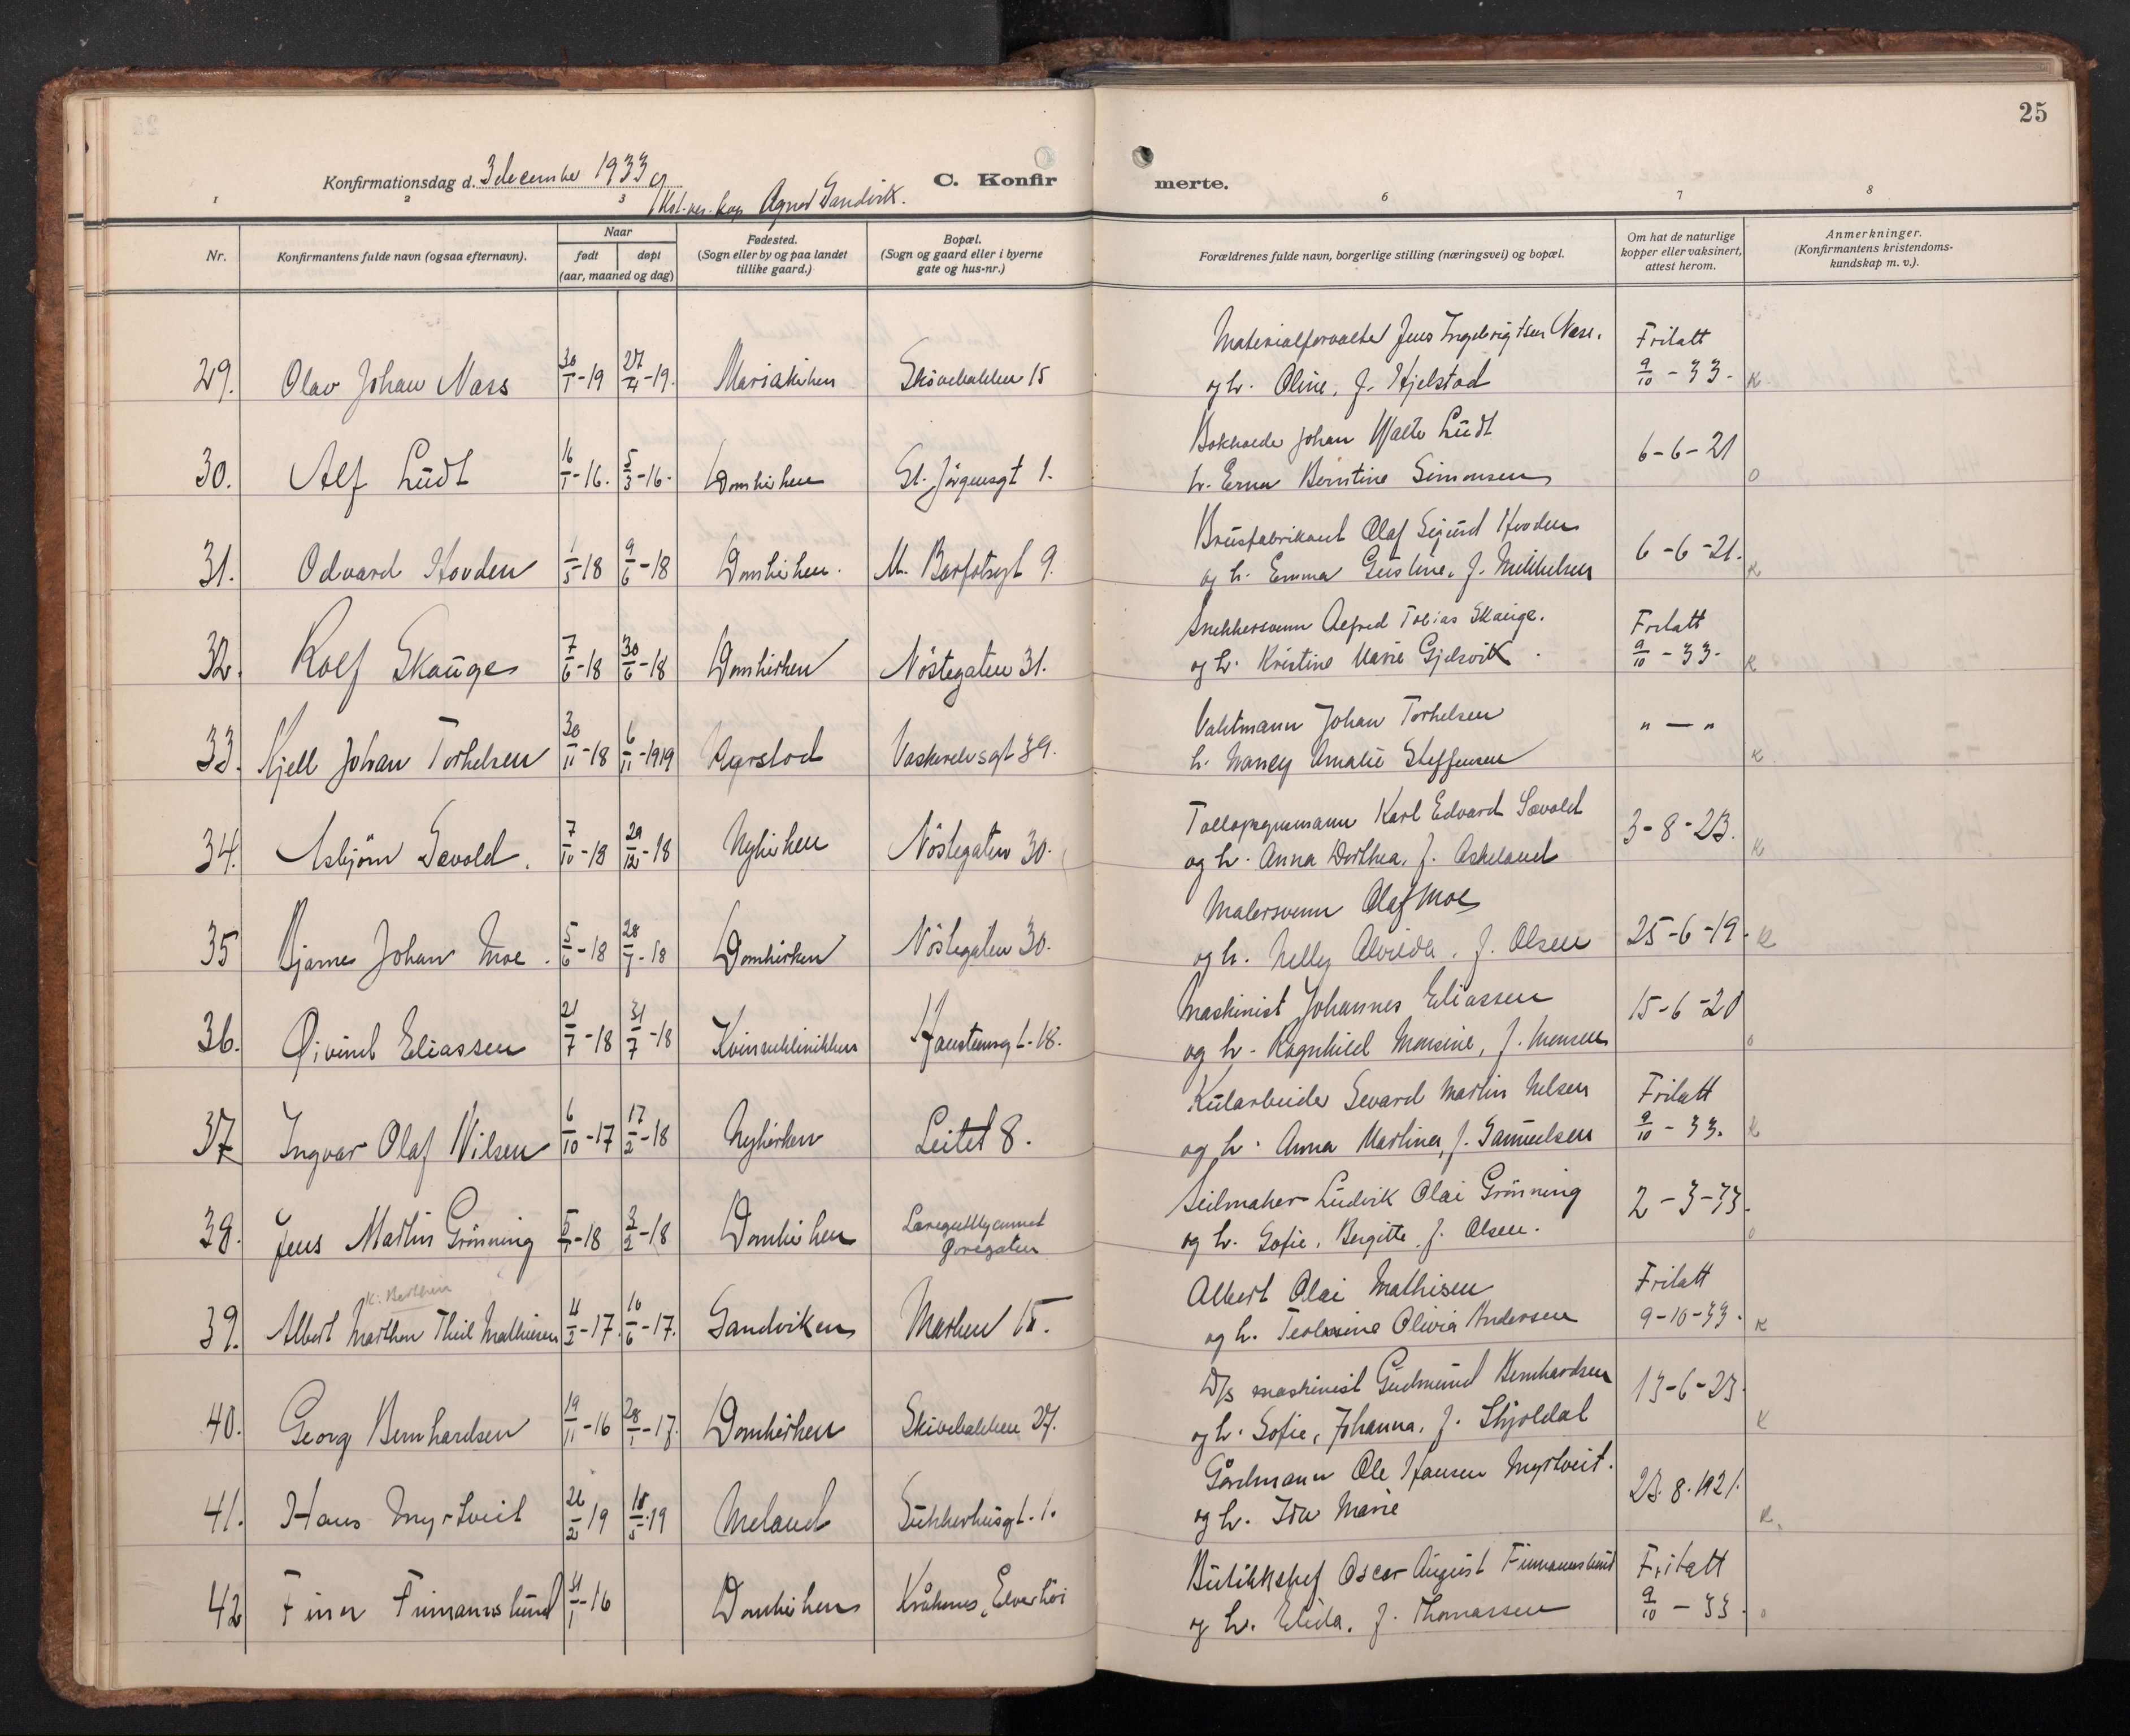 25
Konfirmationsdag d. 3 december 1933
C. Konfirmerte.
Agnar Sandvik.
1 2 3 6 7 8
Nr.
Konfirmantens fulde navn (ogsaa efternavn).
Naar
født døpt
(aar, maaned og dag)
Fødested.
(Sogn eller by og paa landet
tillike gaard.)
Bopæl.
(Sogn og gaard eller i byerne
gate og hus-nr.)
Forældrenes fulde navn, borgerlige stilling (næringsvei) og bopæl.
Om hat de naturlige
kopper eller vaksinert,
attest herom.
Anmerkninger.
(Konfirmantens kristendoms-
kundskap m. v.).
Materialforvalter Jens Ingebrigtsen Næss. Fritatt
29. Olav Johan Næss 30/1-19 27/4-19. Mariakirken Skivebakken 15 og h. Oline, f. Hjelstad 9/10-33. K
Bokholder Johan Walter Lüdt
30. Alf Lüdt 16/1-16. 5/3-16. Domkirken St. Jörgensgt 1. h. Erna Berntine Simonsen 6-6-21 o
Brusfabrikant Olaf Sigurd Hovden
31. Odvard Hovden 1/5-18 9/6-18 Domkirken. M. Barfotsgt 9. og h. Emma Gustine, f. Mikkelsen 6-6-21. K
Snekkersvenn Alfred Tobias Skauge. Fritatt
32. Rolf Skauge 7/6-18 30/6-18 Domkirken Nöstegaten 31. og h. Kristine Marie Gjelsvik 9/10-33. K
Vaktmann Johan Torkelsen
33. Kjell Johan Torkelsen 30/11-18 6/11-1919 Aarstad Vaskerelvsgt 39. h. Nancy Amalie Steffensen " — " K
Tollopsynsmann Karl Edvard Sævold
34. Asbjörn Sævold. 7/10-18 29/12-18 Nykirken Nöstegaten 30. og h. Anna Dorthea, f. Askeland 3-8-23. K
Malersvenn Olaf Moe
35 Bjarne Johan Moe. 5/6-18 28/7-18 Domkirken Nöstegaten 30. og h. Nelly Alvilda, f. Olsen 25-6-19. K
Maskinist Johannes Eliassen
36. Øivind Eliassen 21/7-18 31/7-18 Kvinneklinikken Hausteensgt. 18. og h. Ragnhild Monsine, f. Monsen 15-6-20 o
Kularbeider Sevard Martin Nilsen Fritatt
37. Ingvar Olaf Nilsen 6/10-17 17/2-18 Nykirken Leitet 8. og h. Anna Martina, f. Samuelsen 9/10-33. K
Seilmaker Ludvik Olai Grönning
38. Jens Martin Grönning 5/1-18 3/2-18 Domkirken og h. Sofie, Bergitte, f. Olsen. 2-3-33. o
Albert Olai Mathisen Fritatt
39. Albert Marthon Thiil Mathiesen 4/2-17. 10/6-17. Sandviken Marken 15. og h. Teolasine Olivia Andersen 9-10-33. K
D/s maskinist Gudmund Bernhardsen
40. Georg Bernhardsen 19/11-16 28/1-17. Domkirken Skivebakken 27. og h. Sofie, Johanna, f. Skjoldal 13-6-23. K
Gårdmann Ole Hansen Myrtveit.
41. Hans Myrtveit 26/2-19 18/5-19 Meland Sukkerhusgt. 1. og h. Ida Marie 23.8.1921. K.
Butikksjef Oscar August Finmannslund Fritatt
42 Finn Finmannslund 31/1-16 Domkirken Kråkenes, Elverhöi og h. Elida, f. Thomassen 9/10-33. o